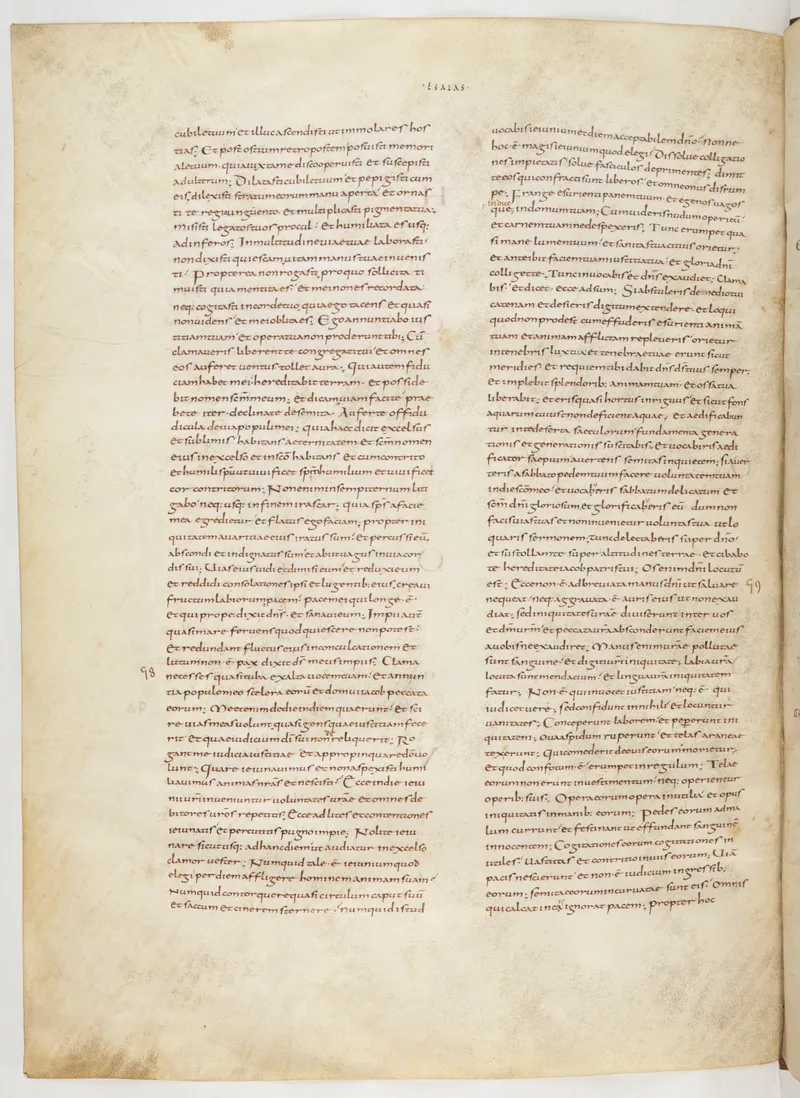 ·ESAIAS·
cubile tuum et illuc ascendisti ut immolares hos
tias; Et post ostium retro postem posuisti memori
ale tuum. quia iuxta me discooperuisti et suscepisti
adulterum; Dilatasti cubile tuum et pepigisti cum
eis. dilexisti stratum eorum manu aperta et ornas
ti te regi unguento. et multiplicasti pigmenta tua;
misisti legatos tuos procul et humiliata es usq;
ad inferos; In multitudine uiae tuae laborasti
non dixisti quiescam. uitam manus tuae inuenis
ti Propterea non rogasti. pro quo sollicita ti
muisti quia mentita es et mei non es recordata
neq; cogitasti in corde tuo. quia ego tacens et quasi
non uidens et mei oblita es; Ego annuntiabo ius
titiam tuam et opera tua non proderunt tibi; Cū
clamaueris liberent te congregati tui et omnes
eos auferet uentus tollet aura. Qui autem fidu
ciam habet mei hereditabit terram. et posside
bit montem scm meum; et dicam uiam facite prae
bete iter. declinate de semita. Auferte offidu
dicula de uia populi mei; quia haec dicit excelsus
et sublimis habitans aeternitatem et scm nomen
eius in excelso et in sco habitans et cum contrito
et humili spu ut uiuificet spm humilium et uiuificet
cor contritorum; Non enim in sempiternum liti
gabo neq; usq; in finem irascar; quia sps a facie
mea egredietur et flatus ego faciam; propter ini
quitatem auaritiae eius iratus sum et percussi eū.
abscondi et indignatus sum et abiit uagus in uia cor
dis sui; Uias eius uidi et dimisi eum et reduxi eum
et reddidi consolationes ipsi et lugentib; eius. creaui
fructum labiorum pacem pacem ei qui longe ē
et qui prope. dixit dns. et sanaui eum; Impii autē
quasi mare feruens quod quiescere non potest
et redundant fluctus eius in conculcationem et
lutum non ē pax dixit ds meus impiis; Clama
98
ne cesses quasi tuba exalta uocem tuam et annun
tia populo meo scelera eorū et domui iacob peccata
eorum; Me etenim de die in diem quaerunt et sci
re uias meas uolunt. quasi gens quae iustitiam fece
rit et quae iudicium di sui non reliquerit; Ro
gant me iudicia iustitiae et appropinquare do uo
lunt; Quare ieiunauimus et non aspexisti humi
liauimus animas nras et nescisti Ecce in die ieiu
nii uri inuenitur uoluntas urae et omnes de
bitores uros repetitis; Ecce ad lites et contentiones
ieiunatis et percutitis pugno impie; Nolite ieiu
nare sicut usq; ad hanc diem ut audiatur in excelso
clamor uester; Numquid tale ē ieiunium quod
elegi per diem affligere hominem animam suam
Numquid contorquere quasi circulum caput suū
et saccum et cinerem sternere numquid istud
uocabis ieiunium et diem acceptabilem dno nonne
hoc ē magis ieiunium quod elegi Dissolue colligatio
nes impietatis solue fasciculos deprimentes; dimit
te eos qui confracti sunt liberos et omne onus disrum
pe; Frange esurienti panem tuum et egenos uagos
induc
que; in domum tuam; Cum uideris nudum operi eū
et carnem tuam ne despexeris; Tunc erumpet qua
si mane lumen tuum et sanitas tua citius orietur;
et anteibit faciem tuam iustitia tua et gloria dni
colliget te. Tunc inuocabis et dns exaudiet; Clama
bis et dicet. ecce adsum; Si abstuleris de medio tui
catenam et desieris digitum extendere. et loqui
quod non prodest cum effuderis esurienti animā
tuam et animam afflictam repleueris orietur
in tenebris lux tua et tenebrae tuae erunt sicut
meridies et requiem tibi dabit dns ds tuus semper;
et implebit splendorib; animam tuam et ossa tua
liberabit; et eris quasi hortus inriguus et sicut fons
aquarum cuius non deficient aquae; et aedificabun
tur in te deserta saeculorum fundamenta genera
tionis et generationis suscitabis. et uocaberis aedi
ficator saepium auertens semitas in quietem; si auer
teris a sabbato pedem tuum facere uoluntatem tuam
in die sco meo et uocaberis sabbatum delicatum et
scm dni gloriosum et glorificaberis eū dum non
facis uias tuas et non inuenietur uoluntas tua ut lo
quaris sermonem; tunc delectaberis super dno
et sustollam te super altitudines terrae. et cibabo
te hereditate iacob patris tui; Os enim dni locutū
est; Ecce non ē adbreuiata manus dni ut saluare
99
nequeat neq; aggrauata ē auris eius ut non exau
diat. sed iniquitates urae diuiserunt inter uos
et dm urm et peccata ura absconderunt faciem eius
a uobis ne exaudiret; Manus enim urae pollutae
sunt sanguine et digiti uri iniquitate. labia ura
locuta sunt mendacium et lingua ura iniquitatem
fatur; Non ē qui inuocet iustitiam neq; ē qui
iudicet uere; sed confidunt in nihili et locuntur
uanitates; Conceperunt laborem et peperunt ini
quitatem; oua aspidum ruperunt et telas araneae
texerunt; Qui comederit de ouis eorum morietur.
et quod confotum ē erumpet in regulum; Telae
eorum non erunt in uestimentum. neq; operientur
operib; suis; Opera eorum opera inutilia et opus
iniquitatis in manib; eorum; Pedes eorum ad ma
lum currunt et festinant ut effundant sanguinē
innocentem; Cogitationes eorum cogitationes in
utiles uastitas et contritio in uiis eorum; Uiā
pacis nescierunt et non ē iudicium in gressib;
eorum; semitae eorum incuruatae sunt eis. Omnis
qui calcat in ea ignorat pacem; propter hoc